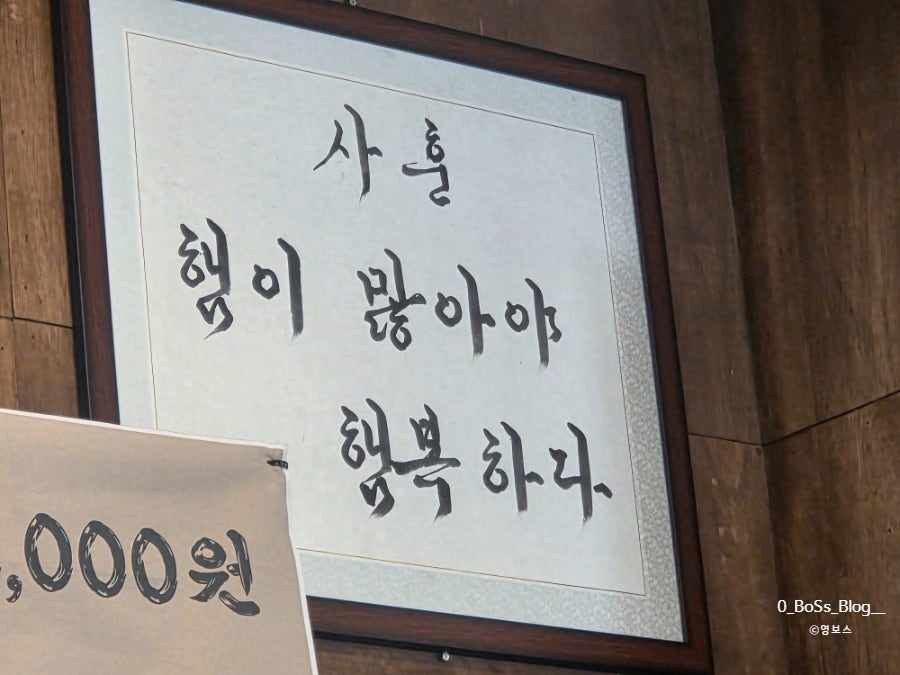 사훈
햄이 많아야
햄복하다
,000원
0_BoSs_Blog__
©영보스